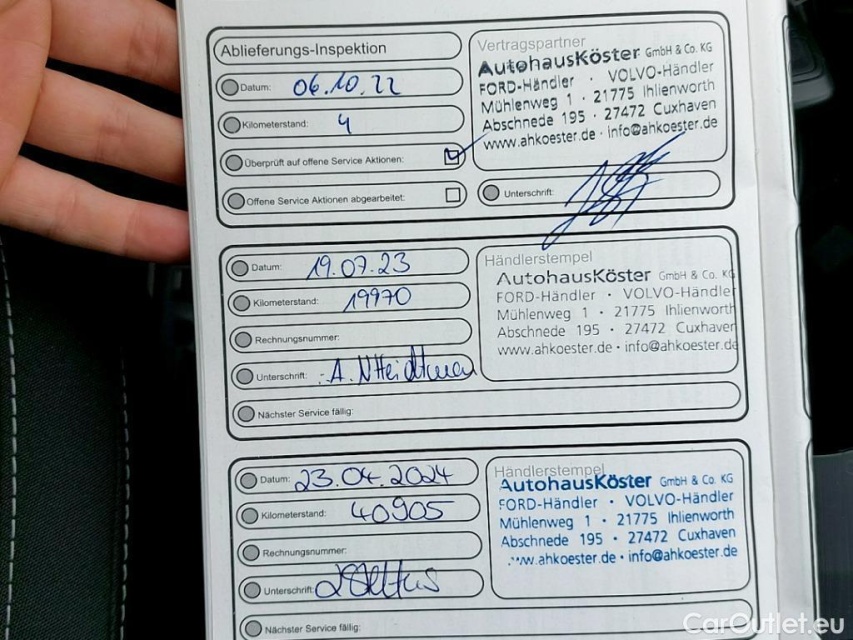 Ablieferungs-Inspektion
Datum: 06.10.22
Kilometerstand: 4
Überprüft auf offene Service Aktionen:
Offene Service Aktionen abgearbeitet:
Vertragspartner
AutohausKöster GmbH & Co. KG
FORD-Händler · VOLVO-Händler
Mühlenweg 1 · 21775 Ihlienworth
Abschnede 195 · 27472 Cuxhaven
www.ahkoester.de · info@ahkoester.de
Unterschrift:
Datum: 19.07.23
Kilometerstand: 19970
Rechnungsnummer:
Unterschrift: A.
Nächster Service fällig:
Händlerstempel
AutohausKöster GmbH & Co. KG
FORD-Händler · VOLVO-Händler
Mühlenweg 1 · 21775 Ihlienworth
Abschnede 195 · 27472 Cuxhaven
www.ahkoester.de · info@ahkoester.de
Datum: 23.04.2024
Kilometerstand: 40905
Rechnungsnummer:
Unterschrift:
Nächster Service fällig:
Händlerstempel
AutohausKöster GmbH & Co. KG
FORD-Händler · VOLVO-Händler
Mühlenweg 1 · 21775 Ihlienworth
Abschnede 195 · 27472 Cuxhaven
ww.ahkoester.de · info@ahkoester.de
CarOutlet.eu